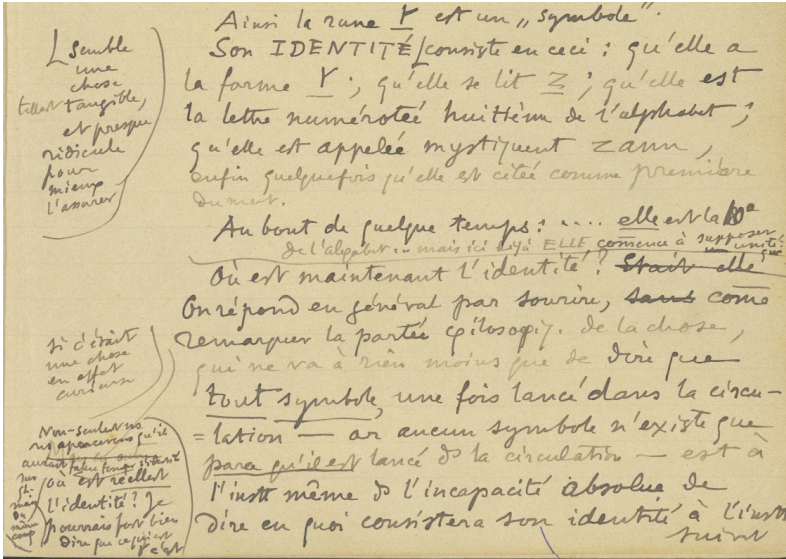 Ainsi la rune Y est un „symbole".
Son IDENTITÉ consiste en ceci : qu'elle a
la forme Y ; qu'elle se lit z ; qu'elle est
la lettre numérotée huitième de l'alphabet ;
qu'elle est appelée mystiquemt zann,
enfin quelquefois qu'elle est citée comme première
du mot.
Au bout de quelque temps : .... elle est la 10e
de l'alphabet ... mais ici déjà ELLE comence à supposer
une unité.
Où est maintenant l'identité ? Était elle
On répond en général par sourire, sans come
remarquer la portée φilosoφiq. de la chose,
qui ne va à rien moins que de dire que
tout symbole, une fois lancé dans la circu-
=lation — or aucun symbole n'existe que
parce qu'il est lancé ds la circulation — est à
l'instt même ds l'incapacité absolue de
dire en quoi consistera son identité à l'instt
suivnt
Semble
une
chose
tellemt tangible,
et presque
ridicule
pour
mieux
l'assurer
si c'était
une chose
en effet
curieuse
Non-seulemt ns
ns apercevrons qu'il
où est réellemt
l'identité ? je
pourrais fort bien
dire que ce qui est
Y c'est